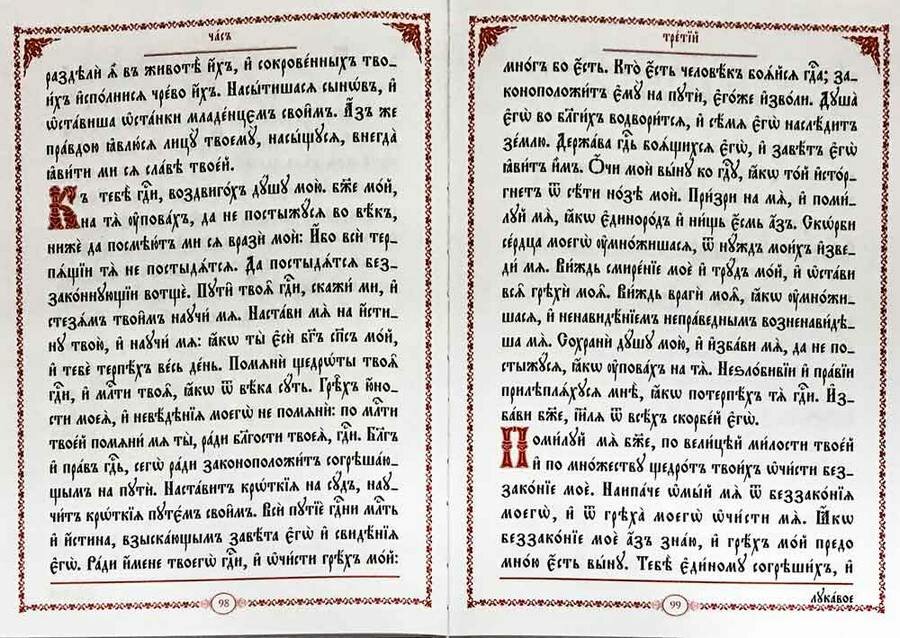 ча́съ
раздѣли́ ѧ҆̀ въ животѣ̀ и҆́хъ, и҆ сокрове́нныхъ тво-
и́хъ и҆спо́лнисѧ чре́во и҆́хъ. Насы́тишасѧ сынѡ́въ, и҆
ѡ҆ста́виша ѡ҆ста́нки младе́нцємъ свои̑мъ. А҆́зъ же
пра́вдою ꙗ҆влю́сѧ лицꙋ̀ твоемꙋ̀, насы́щꙋсѧ, внегда̀
ꙗ҆ви́ти ми сѧ сла́вѣ твое́й.
Къ тебѣ̀ гдⷭ҇и, воздвиго́хъ дꙋ́шꙋ мою̀. бж҃е мо́й,
на тѧ̀ ᲂу҆пова́хъ, да не постыжꙋ́сѧ во вѣ́къ,
нижѐ да посмѣю́т ми сѧ вразѝ моѝ: И҆́бо всѝ тер-
пѧ́щїи тѧ̀ не постыдѧ́тсѧ. Да постыдѧ́тсѧ без-
зако́ннꙋющїи вотщѐ. Пꙋти̑ твоѧ̑ гдⷭ҇и, скажи́ ми, и҆
стезѧ́мъ твои̑мъ наꙋчи́ мѧ. Наста́ви мѧ̀ на и҆́сти-
нꙋ твою̀, и҆ наꙋчи́ мѧ: ꙗ҆́кѡ ты̀ є҆сѝ бг҃ъ сп҃съ мо́й,
и҆ тебѐ терпѣ́хъ ве́сь де́нь. Помѧнѝ щедрѡ́ты твоѧ̑
гдⷭ҇и, и҆ млⷭ҇ти твоѧ̑, ꙗ҆́кѡ ѿ вѣ́ка сꙋ́ть. Грѣ́хъ ю҆́но-
сти моеѧ̀, и҆ невѣ́дѣнїѧ моегѡ̀ не помѧнѝ: по млⷭ҇ти
твое́й помѧни́ мѧ ты̀, ра́ди бла́гости твоеѧ̀, гдⷭ҇и. Бл҃гъ
и҆ пра́въ гдⷭ҇ь, сегѡ̀ ра́ди законоположи́тъ согрѣша́ю-
щымъ на пꙋтѝ. Наста́витъ крѡ́ткїѧ на сꙋ́дъ, наꙋ-
чи́тъ крѡ́ткїѧ пꙋтє́мъ свои̑мъ. Всѝ пꙋтїѐ гдⷭ҇ни млⷭ҇ть
и҆ и҆́стина, взыска́ющымъ завѣ́та є҆гѡ̀ и҆ свидѣ̑нїѧ
є҆гѡ̀. Ра́ди и҆́мене твоегѡ̀ гдⷭ҇и, и҆ ѡ҆чи́сти грѣ́хъ мо́й:
98
тре́тїй
мно́гъ бо є҆́сть. Кто̀ є҆́сть человѣ́къ боѧ́йсѧ гдⷭ҇а; за-
конополо́житъ є҆мꙋ̀ на пꙋтѝ, є҆го́же и҆зво́ли. Дꙋша̀
є҆гѡ̀ во бл҃ги́хъ водвори́тсѧ, и҆ сѣ́мѧ є҆гѡ̀ наслѣ́дитъ
зе́млю. Держа́ва гдⷭ҇ь боѧ́щихсѧ є҆гѡ̀, и҆ завѣ́тъ є҆гѡ̀
ꙗ҆ви́тъ и҆̀мъ. Ѻ҆́чи моѝ вы́нꙋ ко гдⷭ҇ꙋ, ꙗ҆́кѡ то́й и҆сто́р-
гнетъ ѿ сѣ́ти но́зѣ моѝ. При́зри на мѧ̀, и҆ поми́-
лꙋй мѧ̀, ꙗ҆́кѡ є҆диноро́дъ и҆ ни́щь є҆́смь а҆́зъ. Скѡ́рби
се́рдца моегѡ̀ ᲂу҆мно́жишасѧ, ѿ нꙋ́ждъ мои́хъ и҆зве-
дѝ мѧ̀. Ви́ждь смире́нїе моѐ и҆ трꙋ́дъ мо́й, и҆ ѡ҆ста́ви
всѧ̑ грѣхѝ моѧ̑. Ви́ждь врагѝ моѧ̑, ꙗ҆́кѡ ᲂу҆мно́жи-
шасѧ, и҆ ненавидѣ́нїемъ непра́веднымъ возненави́дѣ-
ша мѧ̀. Сохранѝ дꙋ́шꙋ мою̀, и҆ и҆зба́ви мѧ̀, да не по-
стыжꙋ́сѧ, ꙗ҆́кѡ ᲂу҆пова́хъ на тѧ̀. Неѕло́бивїи и҆ пра́вїи
прилѣплѧ́хꙋсѧ мнѣ̀, ꙗ҆́кѡ потерпѣ́хъ тѧ̀ гдⷭ҇и. И҆з-
ба́ви бж҃е, і҆и҃лѧ ѿ всѣ́хъ скорбе́й є҆гѡ̀.
Поми́лꙋй мѧ̀ бж҃е, по вели́цѣй ми́лости твое́й
и҆ по мно́жествꙋ щедро́тъ твои́хъ ѡ҆чи́сти без-
зако́нїе моѐ. Наипа́че ѡ҆мы́й мѧ̀ ѿ беззако́нїѧ
моегѡ̀, и҆ ѿ грѣха̀ моегѡ̀ ѡ҆чи́сти мѧ̀. Ꙗ҆́кѡ
беззако́нїе моѐ а҆́зъ зна́ю, и҆ грѣ́хъ мо́й предо
мно́ю є҆́сть вы́нꙋ. Тебѣ̀ є҆ди́номꙋ согрѣши́хъ, и҆
лꙋка́вое
99